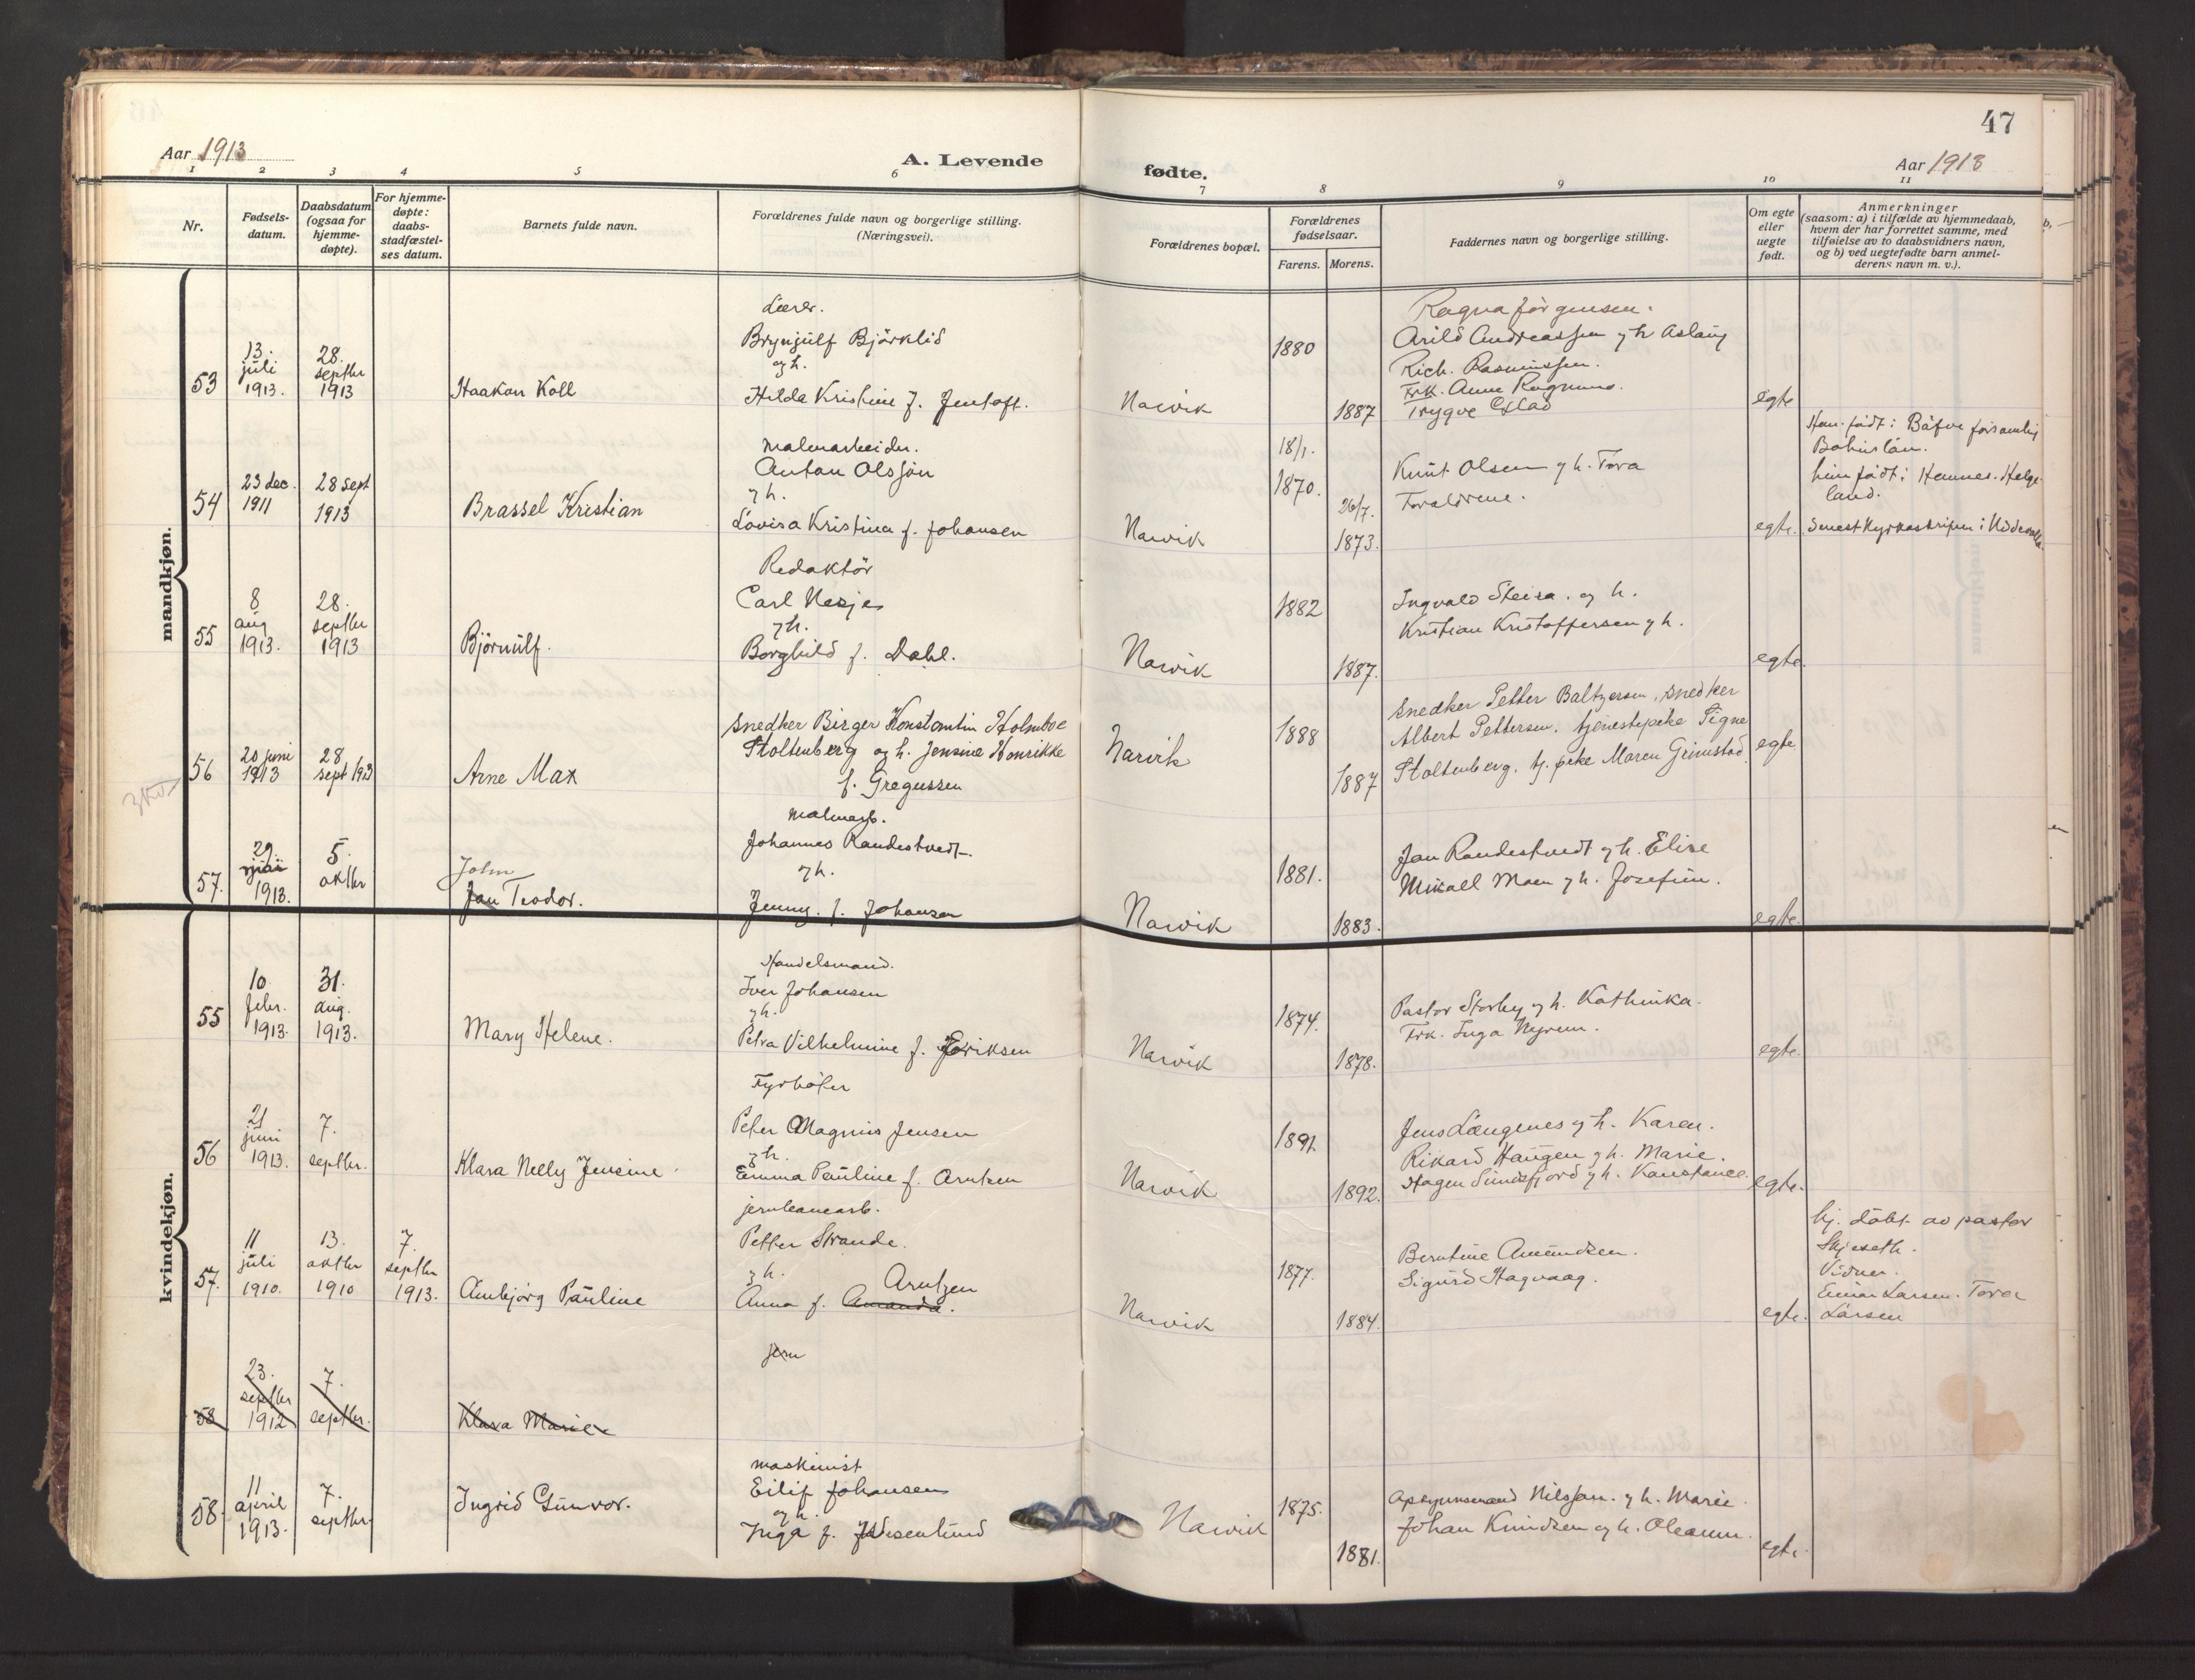 47
Aar 1913
A. Levende
fødte.
Aar 1913
1 2 3 4 5 6 7 8 9 10 11
Nr.
Fødsels-
datum.
Daabsdatum
(ogsaa for
hjemme-
døpte).
For hjemme-
døpte:
daabs-
stadfæstel-
ses datum.
Barnets fulde navn.
Forældrenes fulde navn og borgerlige stilling.
(Næringsvei).
Forældrenes bopæl.
Forældrenes
fødselsaar.
Farens. Morens.
Faddernes navn og borgerlige stilling.
Om egte
eller
uegte
født.
Anmerkninger
(saasom: a) i tilfælde av hjemmedaab,
hvem der har forrettet samme, med
tilføielse av to daabsvidners navn,
og b) ved uegtefødte barn anmel-
derens navn m. v.).
mandkjøn.
53
13.
juli
1913.
28.
septbr
1913
Haakon Koll
Lærer.
Brynjulf Björklid
og h.
Hilda Kristine f. Jentoft.
Narvik
1880
1887
Ragna Jörgensen.
Arild Andreassen og h Aslaug
Rich. Rasmussen.
Frk. Anne Rognmo.
Trygve
egte
54
23 dec.
1911
28 sept
1913
Brassel Kristian
Malmarbeider.
Anton Olsson
og h.
Lovisa Kristina f. Johansen
Narvik
18/1.
1870.
26/7.
1873.
Knut Olsen og h. Tora
Foraldrene.
egte.
Han födt i Bäfve församling
Bohuslän.
hun födt i Hemnes. Helge
land.
55
8
aug
1913.
28.
septbr
1913
Björnulf.
Redaktör
Carl Nesje
og h.
Borghild f. Dahl.
Narvik
1882
1887.
Ingvald Steira. og h.
Kristian Kristoffersen og h.
egte.
56
20 juni
1913
28
sept 1913
Arne Max
Snedker Birger Konstantin Holmboe
Stoltenberg og h. Jensine Henrikke
f. Gregussen
Narvik
1888
1887
Snedker Petter Baltzersen, snedker
Albert Pettersen. tjenestepike Signe
Stoltenberg, tj. pike Maren Grimstad
egte.
57.
29
1913.
5.
oktbr
John
Jan Teodor.
Malmarb.
Johannes Randestvedt.
og h.
Jenny. f. Johansen
Narvik
1881.
1883.
Jan Randestvedt og h. Elise
Mikael Moen og h. Josefine.
egte.
kvindekjøn.
55
10
febr.
1913.
31.
aug.
1913.
Mary Helene.
Handelsmand.
Iver Johansen
og h.
Petra Vilhelmine f. Eriksen
Narvik
1874.
1878.
Pastor Storby og h. Kathinka.
Frk. Inga Nyrem.
egte.
56
21
juni
1913.
7.
septbr.
Klara Nelly Jensine
Fyrböter
Peter Magnus Jensen
og h.
Emma Pauline f. Arntzen
Narvik
1891.
1892.
Jens Længenes og h. Karen.
Rikard Haugen og h. Marie.
Hagen Sundsfjord og h. Konstance.
egte.
57.
11
juli
1910.
13.
oktbr
1910
7.
septbr
1913.
Ambjörg Pauline
jernbanearb.
Petter Strande.
og h.
Arntzen
Anna f. Amanda.
Narvik
1877.
1884.
Berntine Amundsen.
Sigurd Hagvaag.
egte.
hj. döbt av pastor
Skjeseth.
Vidner.
Einar Larsen. Tora
Larsen
58
23.
septbr
1912
7.
septbr.
Klara Marie
jern
58.
11
april
1913.
7.
septbr.
Ingrid Gunvor.
maskinist
Eilif Johansen
og h.
Inga f. Wesenlund
Narvik
1875.
1881.
Opsynsmand Nilsson. og h. Marie.
Johan Knudsen og h. Oleanna.
egte.